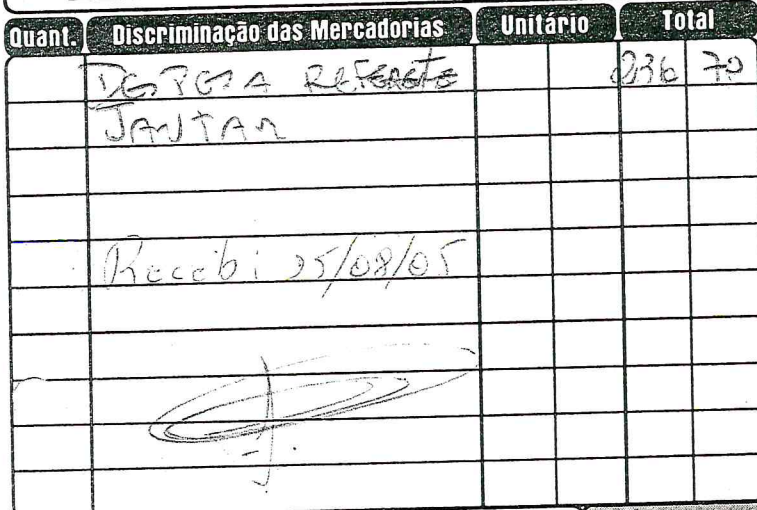 Quant. Discriminação das Mercadorias Unitário Total
DESPESA REFERETE 236 70
JANTAR
Recebi 25/08/05